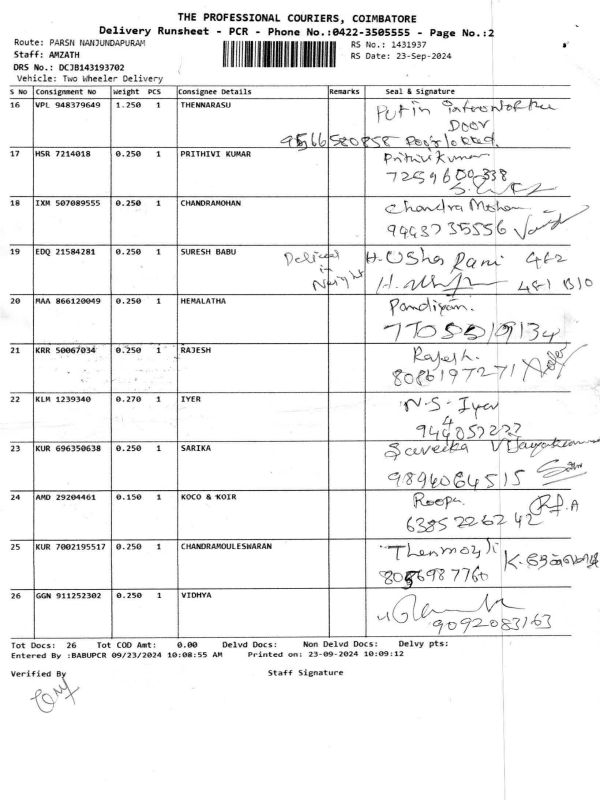 THE PROFESSIONAL COURIERS, COIMBATORE
Delivery Runsheet - PCR - Phone No.:0422-3505555 - Page No.:2
Route: PARSN NANJUNDAPURAM RS No.: 1431937
Staff: AMZATH RS Date: 23-Sep-2024
DRS No.: DCJB143193702
Vehicle: Two Wheeler Delivery
S No Consignment No Weight PCS Consignee Details Remarks Seal & Signature
16 VPL 948379649 1.250 1 THENNARASU Put in
Door
9566580858 Door locked.
17 HSR 7214018 0.250 1 PRITHIVI KUMAR Prithivi Kumar
7259600338
18 IXM 507089555 0.250 1 CHANDRAMOHAN Chandra Mohan
9443735556
19 EDQ 21584281 0.250 1 SURESH BABU H. Usha Rani 482
in 481 B10
20 MAA 866120049 0.250 1 HEMALATHA Pandiyan.
7705519134
21 KRR 50067034 0.250 1 RAJESH Rajesh.
8086197271
22 KLM 1239340 0.270 1 IYER N.S. Iyer
23 KUR 696350638 0.250 1 SARIKA
9894064515
24 AMD 29204461 0.150 1 KOCO & KOIR Roopa.
6385226242
25 KUR 7002195517 0.250 1 CHANDRAMOULESWARAN Thenmozhi
26 GGN 911252302 0.250 1 VIDHYA
9092083163
Tot Docs: 26 Tot COD Amt: 0.00 Delvd Docs: Non Delvd Docs: Delvy pts:
Entered By :BABUPCR 09/23/2024 10:08:55 AM Printed on: 23-09-2024 10:09:12
Verified By Staff Signature